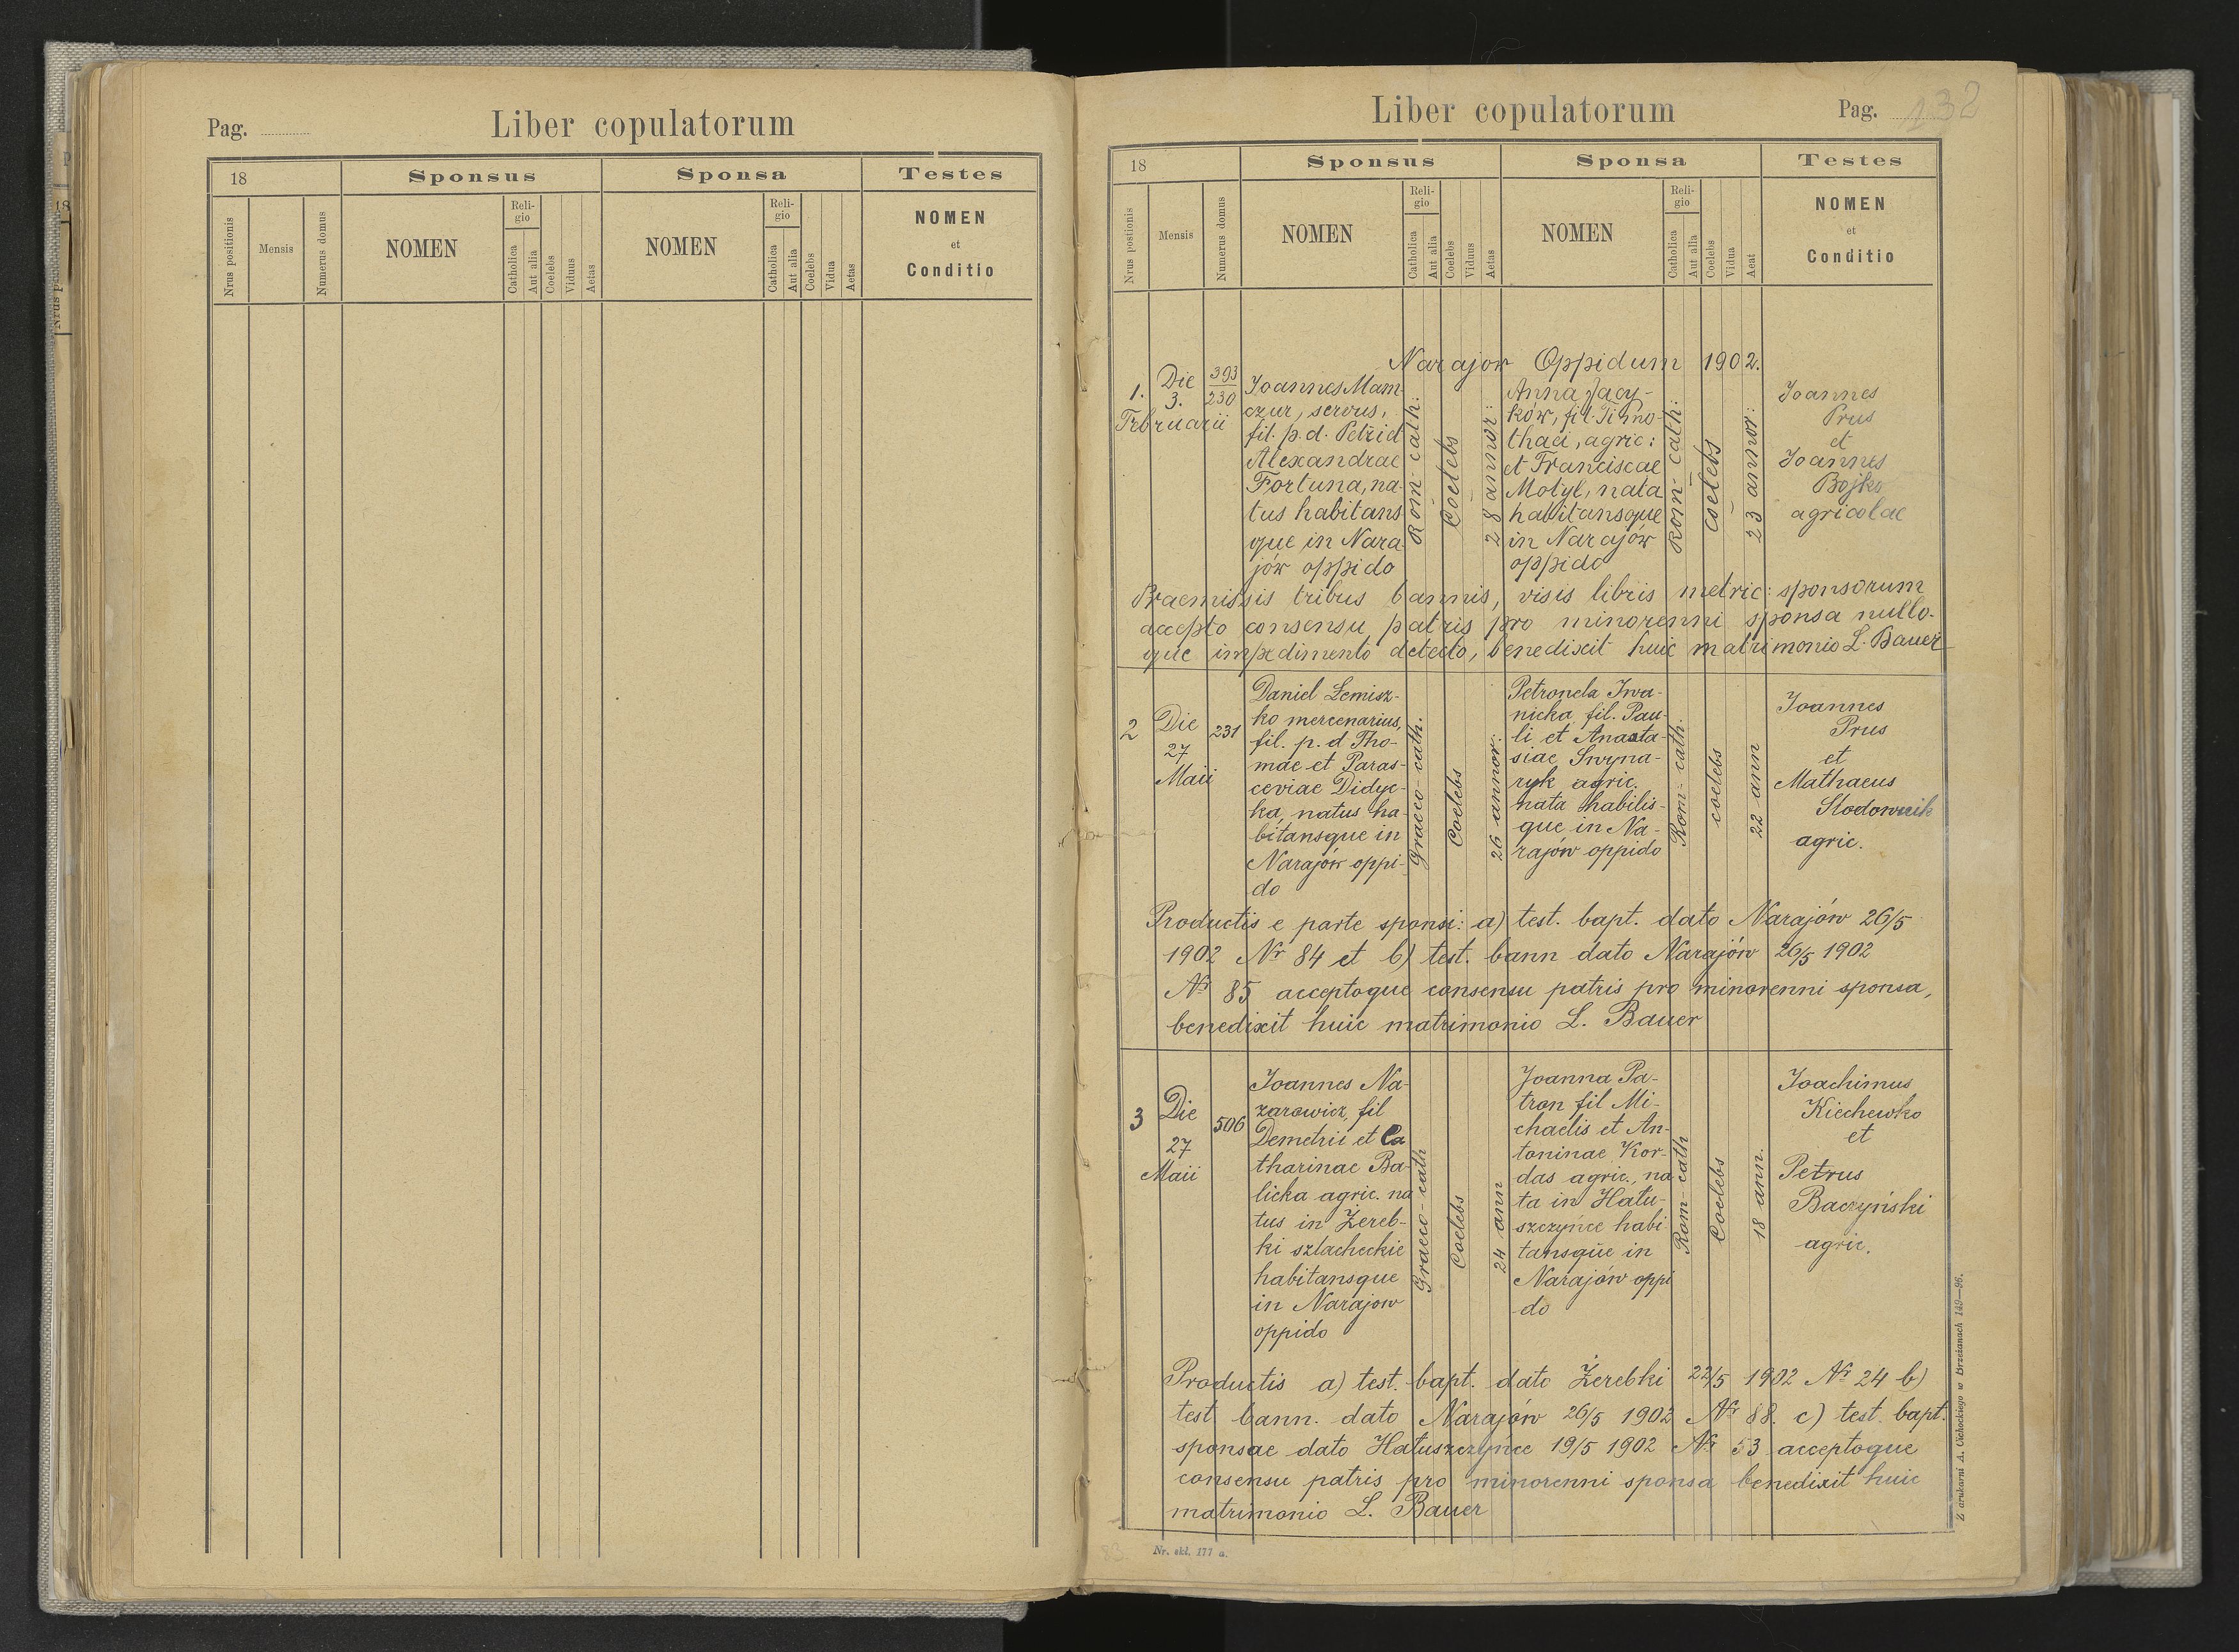 Pag.
Liber copulatorum
18
Sponsus
Sponsa
Testes
Nrus positionis
Mensis
Numerus domus
NOMEN
Reli-
gio
Catholica
Aut alia
Coelebs
Viduus
Aetas
NOMEN
Reli-
gio
Catholica
Aut alia
Coelebs
Vidua
Aetas
NOMEN
et
Conditio
Liber copulatorum
Pag. 132
18
Sponsus
Sponsa
Testes
Nrus postionis
Mensis
Numerus domus
NOMEN
Reli-
gio
Catholica
Aut alia
Coelebs
Viduus
Aetas
NOMEN
Reli-
gio
Catholica
Aut alia
Coelebs
Vidua
Aeat
NOMEN
et
Conditio
Narajow Oppidum 1902.
1.
Die
3.
Februarii
393
230
Joannes Mam-
czur, servus,
fil. p. d. Petri et
Alexandrae
Fortuna, na-
tus habitans
que in Nara-
jów oppido
Rom-cath:
Coelebs
28 annor:
Anna Jacy-
ków, fil. Timo-
thaei, agric:
et Franciscae
Motyl, nata
habitansque
in Narajów
oppido
Rom-cath:
Coelebs
23 annor:
Joannes
Prus
et
Joannes
Bojko
agricolae
Praemissis tribus bannis, visis libris metric: sponsorum
accepto consensu patris pro minorenni sponsa nullo-
que impedimento detecto, benedixit huic matrimonio L. Bauer
2
Die
27
Maii
231
Daniel Lemisz-
ko mercenarius,
fil. p. d Tho-
mae et Paras-
ceviae Didyc-
ka, natus ha-
bitansque in
Narajów oppi-
do
Graeco-cath.
Coelebs
26 annor:
Petronela Iwa-
nicka, fil. Pau-
li et Anasta-
siae Swyna-
ryk agric.
nata habilis-
que in Na-
rajów oppido
Rom-cath.
coelebs
22 ann
Joannes
Prus
et
Mathaeus
Slodownik
agric.
Productis e parte sponsi: a) test. bapt. dato Narajów 26/5
1902 Nr 84 et b) test. bann dato Narajów 26/5 1902
Nr 85 acceptoque consensu patris pro minorenni sponsa,
benedixit huic matrimonio L. Bauer
3
Die
27
Maii
506
Joannes Na-
zarowicz, fil
Demetrii et Ca
tharinae Ba-
licka agric. na
tus in Żereb-
ki szlacheckie
habitansque
in Narajow
oppido
Graeco-cath
Coelebs
24 ann
Joanna Pa-
tron fil Mi-
chaelis et An-
toninae Kor-
das agric., na
ta in Hatu-
szczyńce habi
tansque in
Narajów oppi
do
Rom-cath
Coelebs
18 ann.
Joachimus
Kiechewko
et
Petrus
Baczyński
agric.
Productis a) test. bapt. dato Żerebki 22/5 1902 Nr 24 b)
test bann. dato Narajów 26/5 1902 Nr 88. c) test. bapt.
sponsae dato Hatuszczyńce 19/5 1902 Nr 53 acceptoque
consensu patris pro minorenni sponsa benedixit huic
matrimonio L. Bauer
Nr. skł. 177 a.
Z drukarni A. Cichockiego w Brzeżanach 149—96.